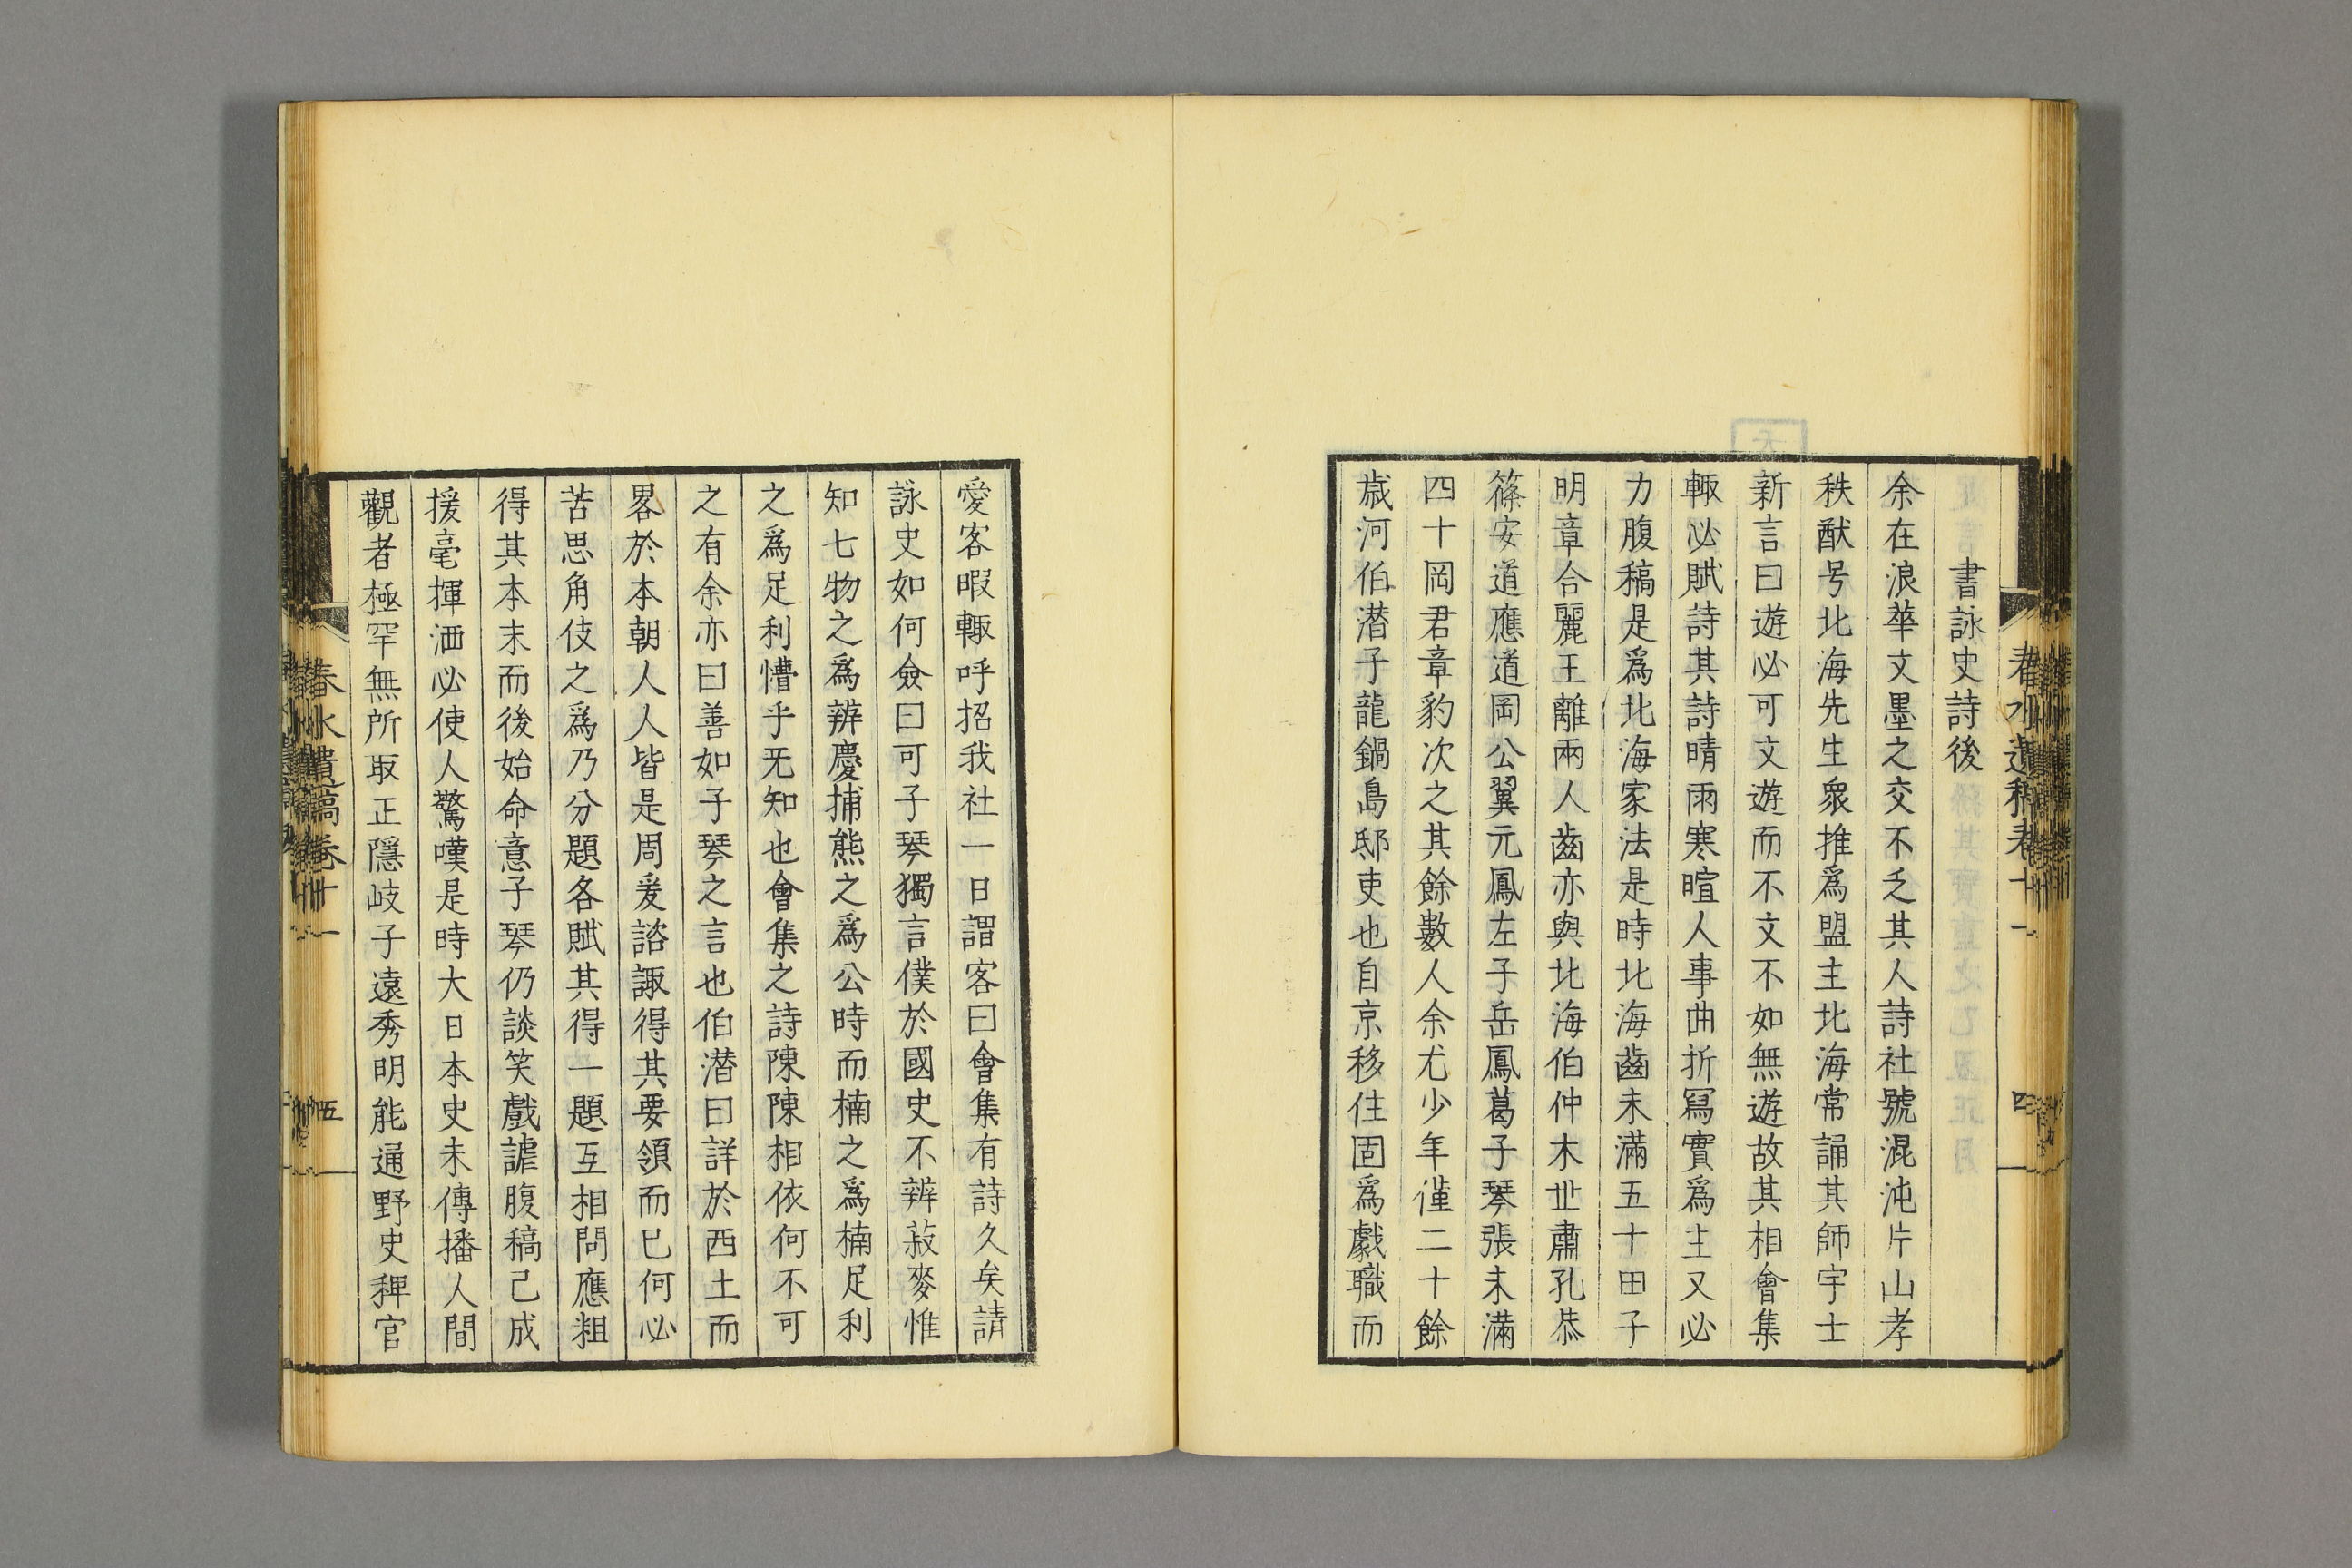 書詠史詩後
余在浪華文墨之交不乏其人詩社號混沌片山孝
秩猷号北海先生衆推爲盟主北海常誦其師宇士
新言曰遊必可文遊而不文不如無遊故其相會集
輙必賦詩其詩晴雨寒暄人事曲折冩實爲主又必
力腹稿是爲北海家法是時北海齒未滿五十田子
明章合麗王離兩人齒亦與北海伯仲木世肅孔恭
篠安道應道岡公翼元鳳左子岳鳳葛子琴張未滿
四十岡君章豹次之其餘數人余尤少年僅二十餘
歳河伯潜子龍鍋島邸吏也自京移住固爲劇職而
春水遺稿卷十一
四
愛客暇輙呼招我社一日謂客曰會集有詩久矣請
詠史如何僉曰可子琴獨言僕於國史不辨菽麥惟
知七物之爲辨慶捕熊之爲公時而楠之爲楠足利
之爲足利懵乎无知也會集之詩陳陳相依何不可
之有余亦曰善如子琴之言也伯潜曰詳於西土而
畧於本朝人人皆是周爰諮諏得其要領而已何必
苦思角伎之爲乃分題各賦其得一題互相問應粗
得其本末而後始命意子琴仍談笑戲謔腹稿己成
援毫揮洒必使人驚嘆是時大日本史未傳播人間
觀者極罕無所取正隱岐子遠秀明能通野史稗官
春水遺稿卷十一
五